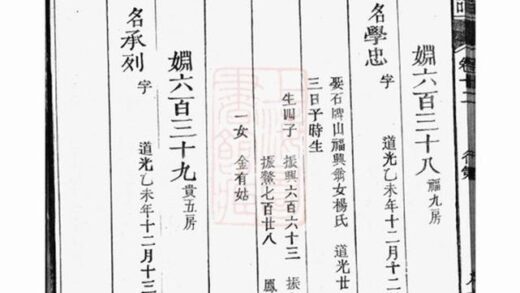 卷十二
行第
婣六百三十八 福九房
名學忠 字 道光乙未年十二月十二
娶石牌山福興翁女楊氏 道光廿
三日子時生
生四子 振興六百六十三 振
振鰲七百廿八 鳳
一女 金有姑
婣六百三十九 貴五房
名承列 字 道光乙未年十二月十三